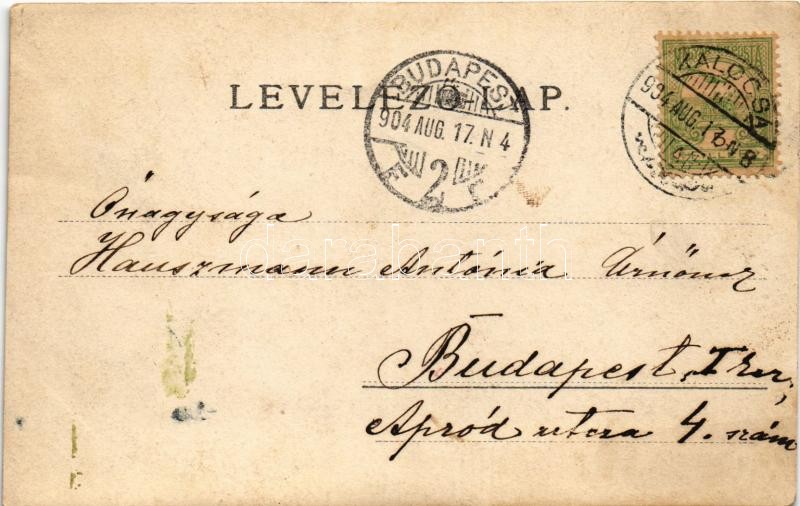 LEVELEZŐ-LAP.
BUDAPEST
904 AUG. 17. N 4
2
KALOCSA
904 AUG. 17 N 8
Őnagysága
Hauszmann Antónia Úrnőnek
Budapest, I ker,
Apród utcza 4. szám
darabanth